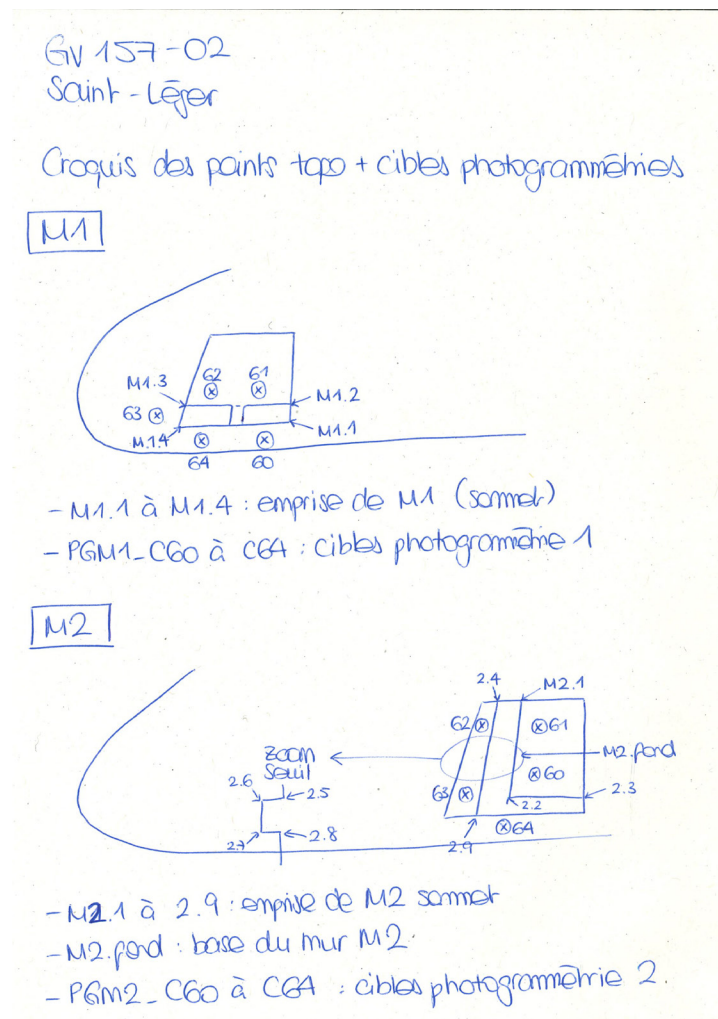 GV 157-02
Saint-Léger
Croquis des points topo + cibles photogrammétries
M1
M1.3
62
61
M1.2
63
M1.4
M1.1
64
60
- M1.1 à M1.4 : emprise de M1 (sommet)
- PGM1_C60 à C64 : cibles photogrammétrie 1
M2
2.4
M2.1
62
61
Zoom
Seuil
M2.fond
2.6
2.5
60
63
2.2
2.3
2.7
2.8
64
2.9
- M2.1 à 2.9 : emprise de M2 sommet
- M2.fond : base du mur M2.
- PGM2_C60 à C64 : cibles photogrammétrie 2.